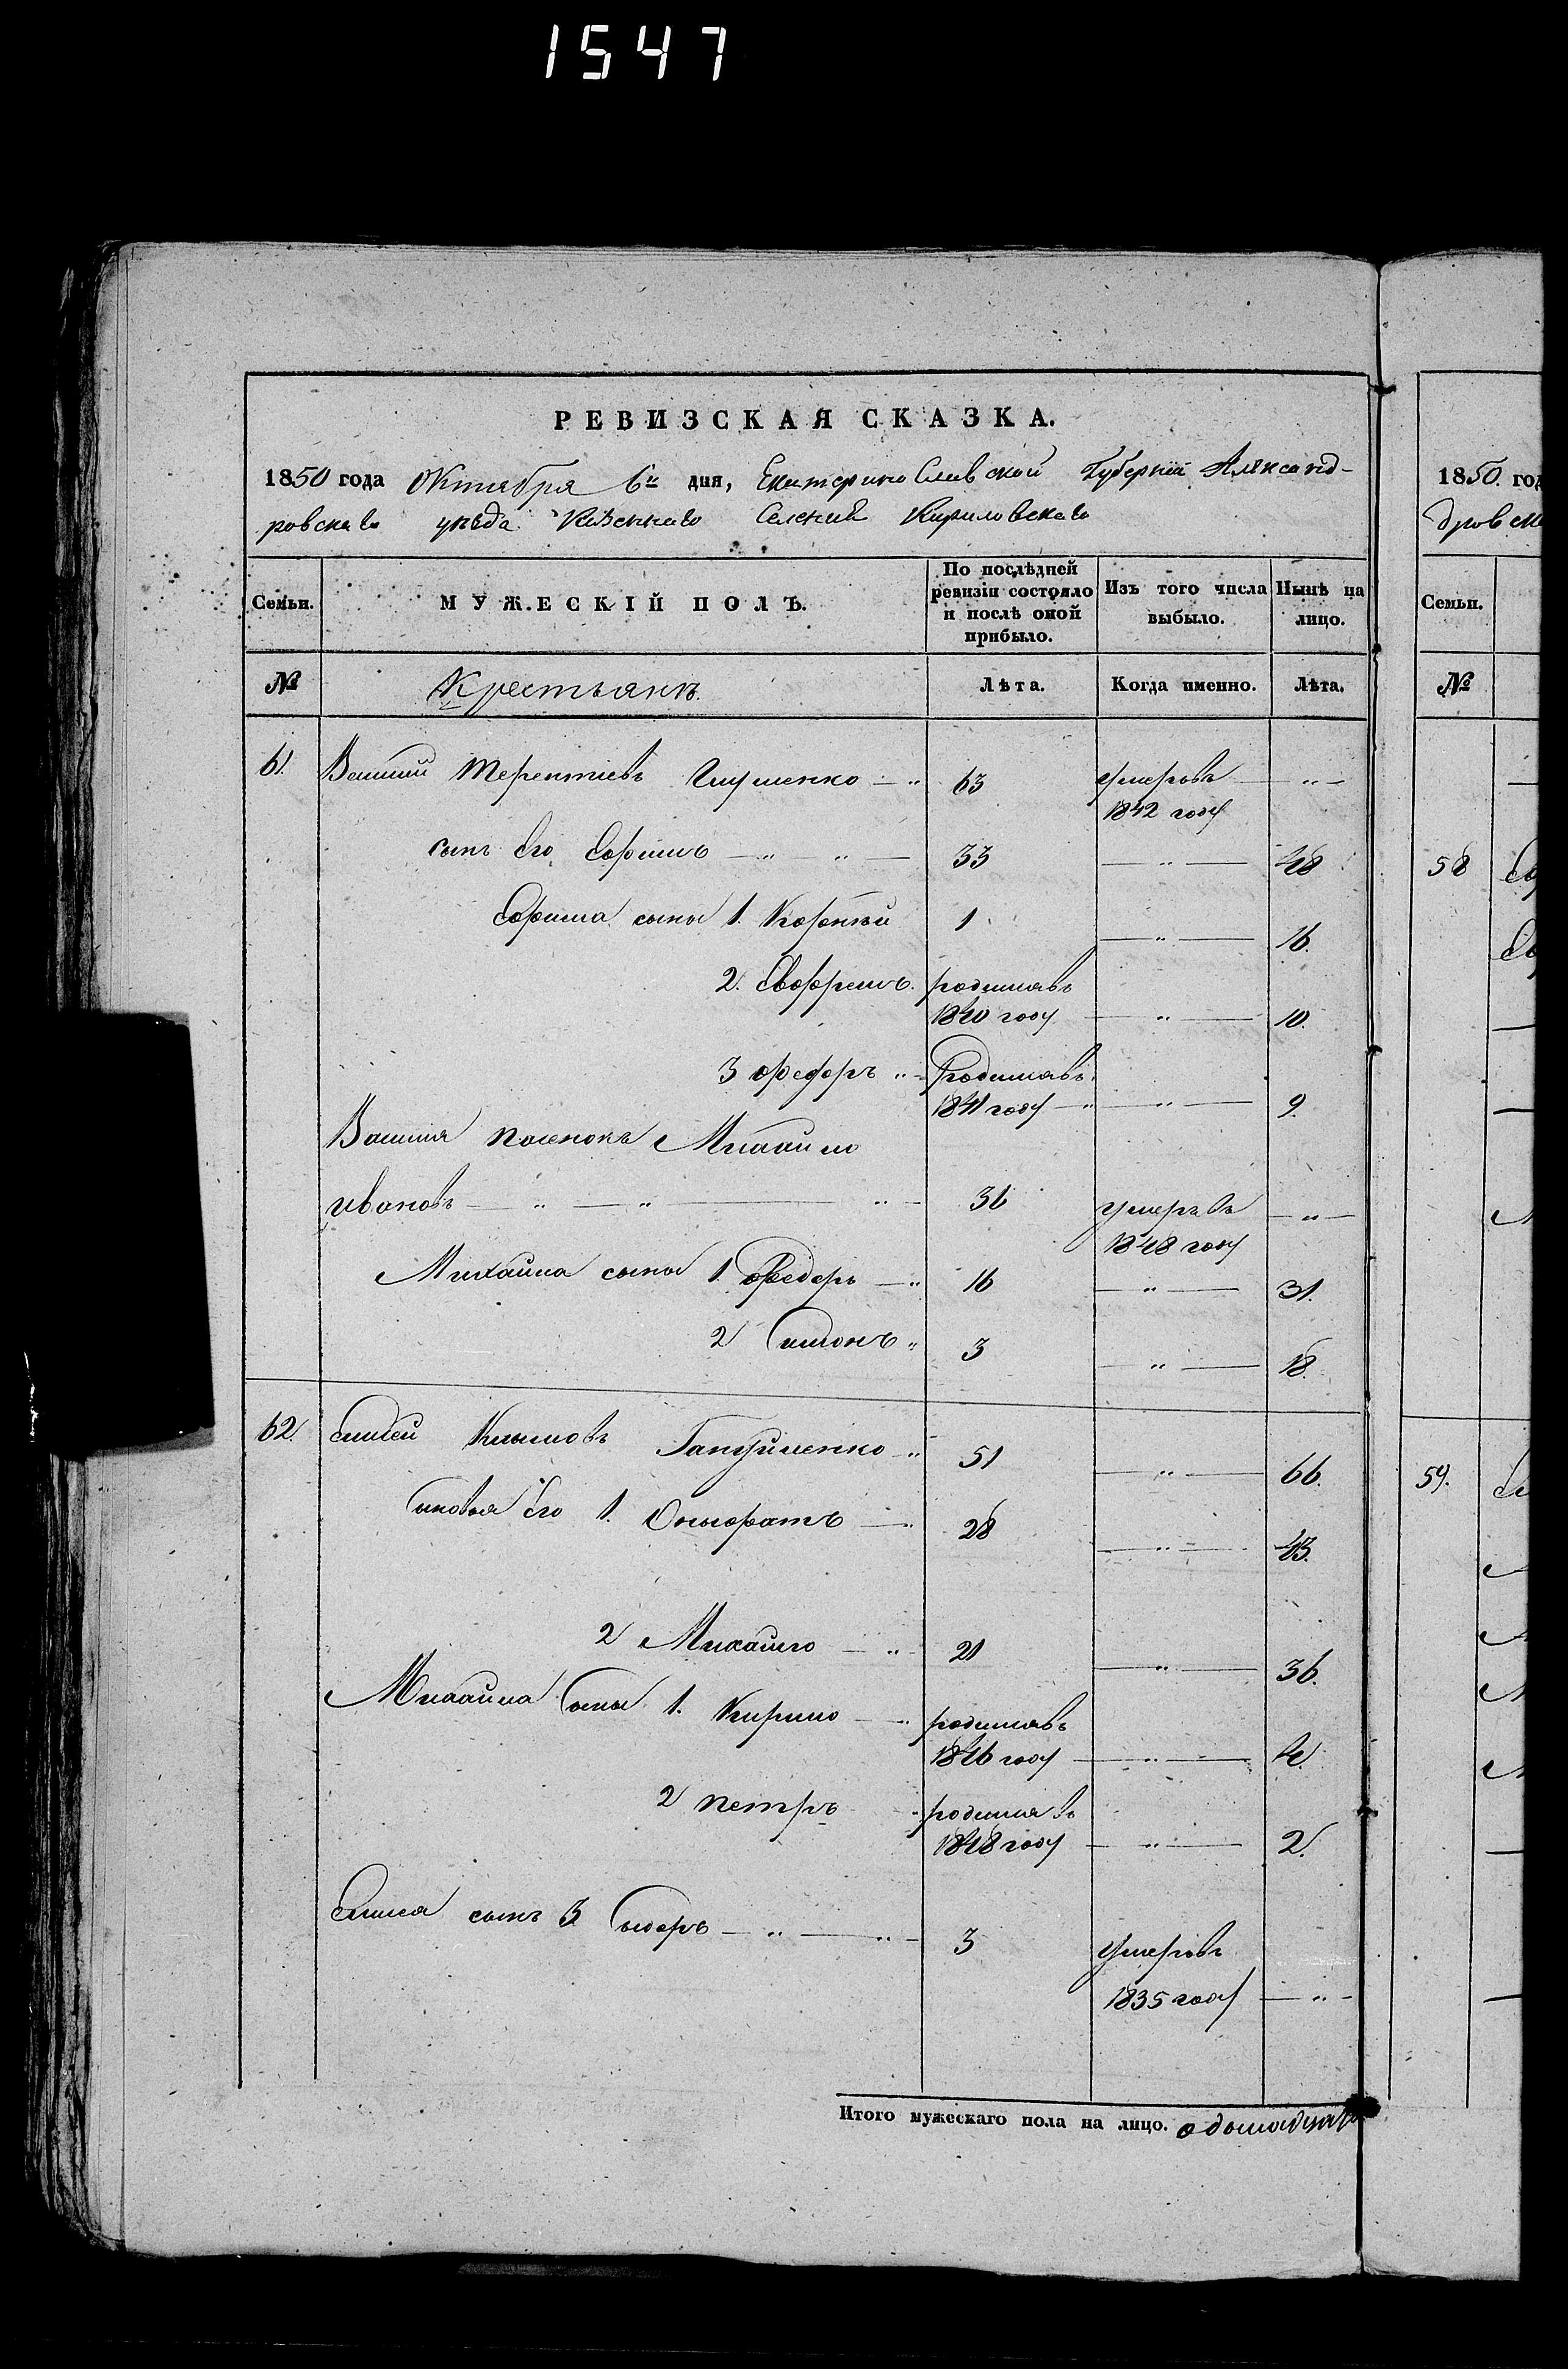 1547
РЕВИЗСКАЯ СКАЗКА.
1850 года Октября 6го дня, Екатеринославской Губерніи Александ-
ровскаго уѣзда Казеннаго Селенія Кириловскаго
Семьи. МУЖЕСКІЙ ПОЛЪ. По послѣдней ревизіи состояло и послѣ оной прибыло. Изъ того числа выбыло. Нынѣ на лицо.
№ Крестьянъ. Лѣта. Когда именно. Лѣта.
61. Терентіевъ 63 умеръвъ — „ —
1842 году
сынъ Его Ефимъ — „ — „ — 33 — „ — 48
Ефима сыны 1. Корнѣй 1 — „ — 16.
2. родилавъ
1840 году — „ — 10.
3 „ родилавъ
1841 году — „ — „ — 9.
Михайло
ивановъ — „ — „ — „ — 36 умеръвъ — „ —
1848 году
Михайла сыны 1. Федоръ — „ 16 — „ — 31.
2 „ 3 — „ — 18.
62. Елисей Климовъ „ 51 — „ — 66.
Его 1. — „ 28 — „ — 43.
2 Михайло — „ 21 — „ — 36.
Михайла Сыны 1. Кирило — „ родилавъ
1846 году — „ — 4.
2 петръ „ родилавъ
1848 году — „ — 2.
сынъ 3 Сидоръ — „ — „ — 3 умеръвъ
1835 году — „ —
Итого мужескаго пола на лицо.
1850. год
дровск
Семьи.
№
58
59.